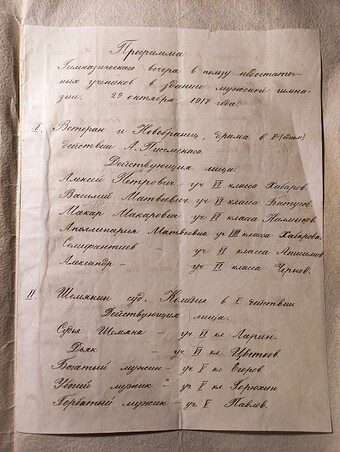 Программа
Гимназического вечера в пользу недостаточ-
ных учеников в здании мужской гимна-
зии. 29 октября 1917 года.
I Ветеран и Новобранец, драма в
действии А. Писемскаго
Действующия лица:
Алексей Петрович уч. VI класса Хабаров
Василий Матвеевич уч VI класса
Макар Макарович уч VI класса Калмыков
Апполинария Матвеевна уч VIII класса Хабарова
уч VI класса
Александр – уч VI класса Чернов.
II. Шемякин суд. Комедия в I действии
Действующия лица.
Судья Шемяка – уч VI кл. Ларин.
Дьяк – уч VI кл Цветков
Богатый мужик – уч V кл Егоров
Убогий мужик – уч V кл Горюхин
Горбатый мужик – уч V Павлов.